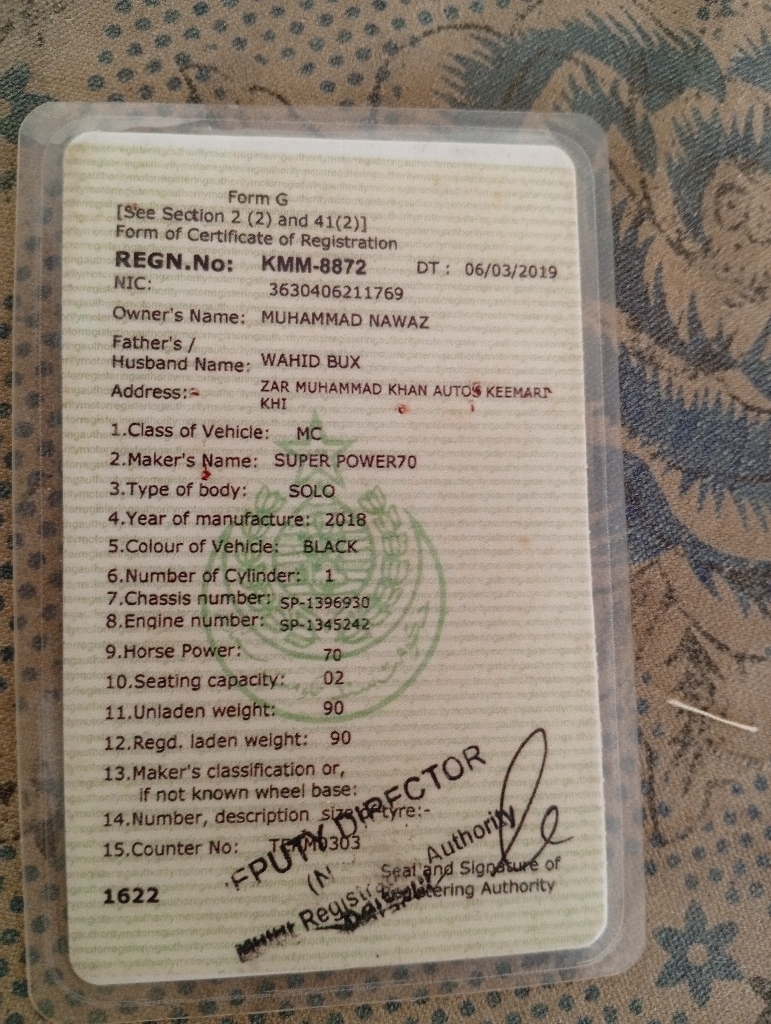 Form G
[See Section 2 (2) and 41(2)]
Form of Certificate of Registration
REGN.No: KMM-8872 DT : 06/03/2019
NIC: 3630406211769
Owner's Name: MUHAMMAD NAWAZ
Father's /
Husband Name: WAHID BUX
Address:- ZAR MUHAMMAD KHAN AUTOS KEEMARI
KHI
1.Class of Vehicle: MC
2.Maker's Name: SUPER POWER70
3.Type of body: SOLO
4.Year of manufacture: 2018
5.Colour of Vehicle: BLACK
6.Number of Cylinder: 1
7.Chassis number: SP-1396930
8.Engine number: SP-1345242
9.Horse Power: 70
10.Seating capacity: 02
11.Unladen weight: 90
12.Regd. laden weight: 90
13.Maker's classification or,
if not known wheel base:
14.Number, description size tyre:-
15.Counter No:
DIRECTOR
Authority
Seal and Signature of
Registering Authority
1622